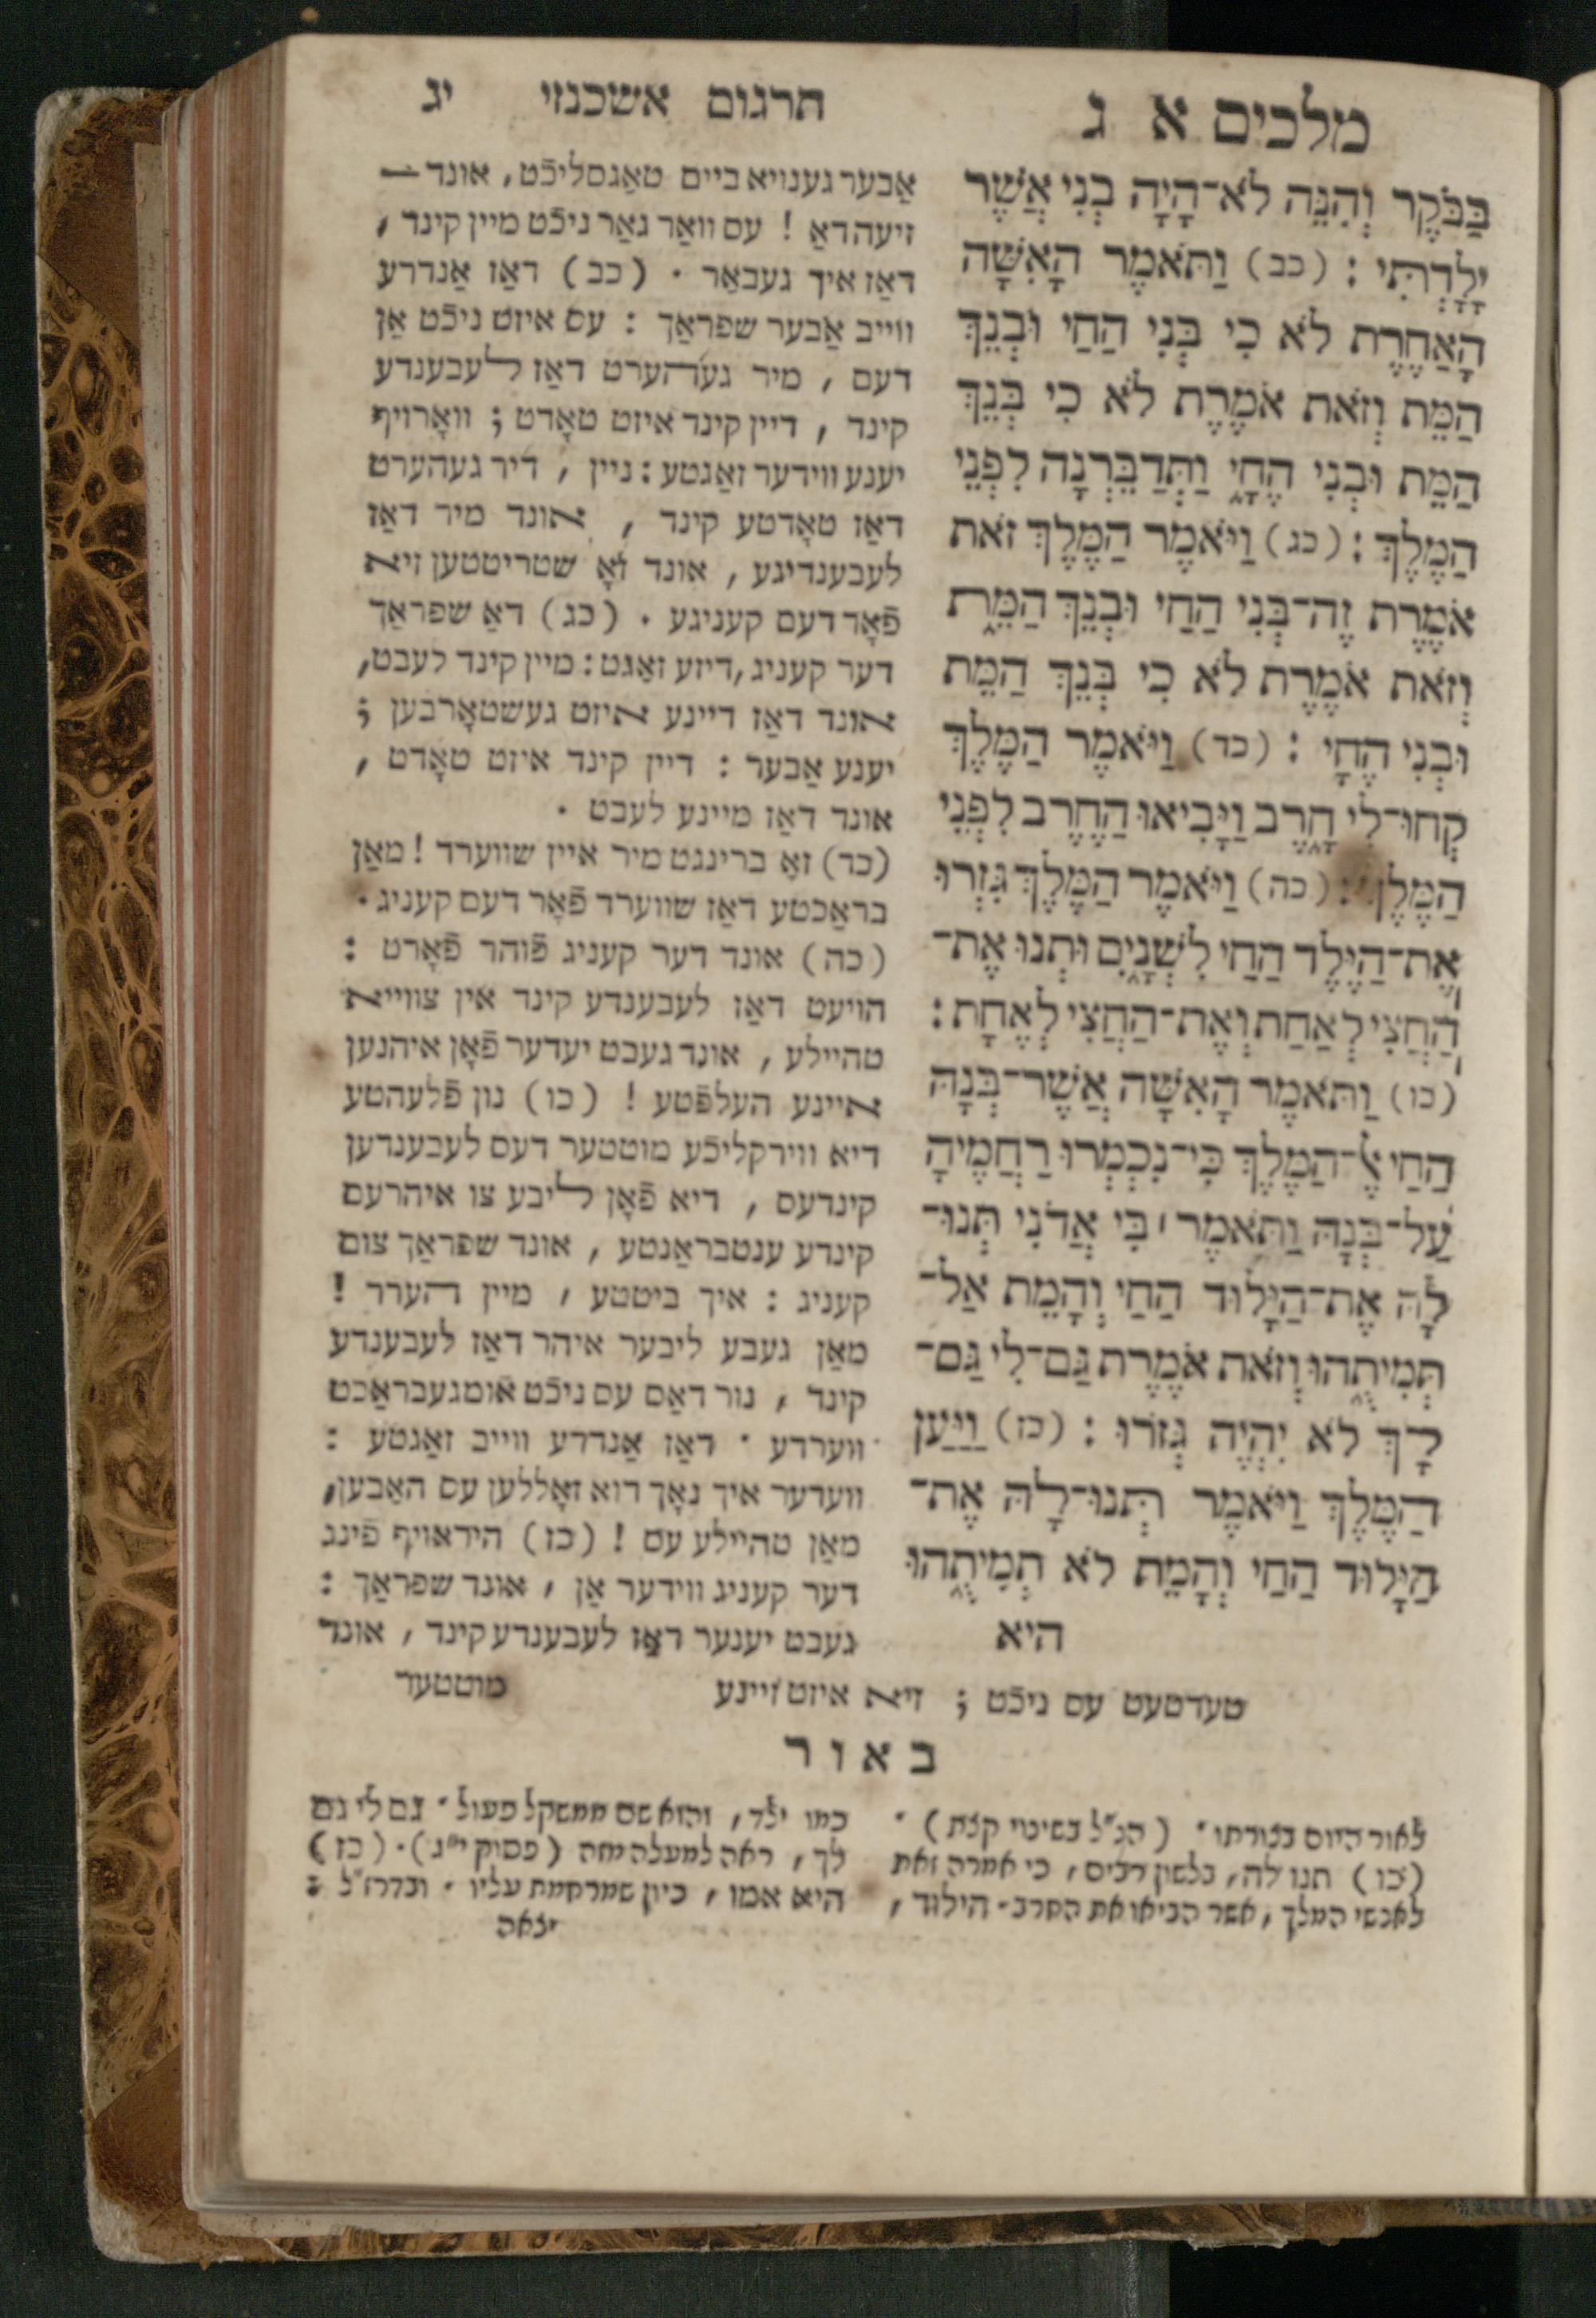 מלכים א ג
בַּבֹּקֶר וְהִנֵּה לֹא־הָיָה בְנִי אֲשֶׁר
יָלָדְתִּי : (כב) וַתֹּאמֶר הָאִשָּׁה
הָאַחֶרֶת לֹא כִי בְּנִי הַחַי וּבְנֵךְ
הַמֵּת וְזֹאת אֹמֶרֶת לֹא כִי בְּנֵךְ
הַמֵּת וּבְנִי הֶחָי וַתְּדַבֵּרְנָה לִפְנֵי
הַמֶּלֶךְ : (כג) וַיֹּאמֶר הַמֶּלֶךְ זֹאת
אֹמֶרֶת זֶה־בְּנִי הַחַי וּבְנֵךְ הַמֵּת
וְזֹאת אֹמֶרֶת לֹא כִי בְּנֵךְ הַמֵּת
וּבְנִי הֶחָי : (כד) וַיֹּאמֶר הַמֶּלֶךְ
קְחוּ־לִי חָרֶב וַיָּבִיאוּ הַחֶרֶב לִפְנֵי
הַמֶּלֶךְ : (כה) וַיֹּאמֶר הַמֶּלֶךְ גִּזְרוּ
אֶת־הַיֶּלֶד הַחַי לִשְׁנָיִם וּתְנוּ אֶת־
הַחֲצִי לְאַחַת וְאֶת־הַחֲצִי לְאֶחָת :
(כו) וַתֹּאמֶר הָאִשָּׁה אֲשֶׁר־בְּנָהּ
הַחַי אֶל־הַמֶּלֶךְ כִּי־נִכְמְרוּ רַחֲמֶיהָ
עַל־בְּנָהּ וַתֹּאמֶר ׀ בִּי אֲדֹנִי תְּנוּ־
לָהּ אֶת־הַיָּלוּד הַחַי וְהָמֵת אַל־
תְּמִיתֻהוּ וְזֹאת אֹמֶרֶת גַּם־לִי גַם־
לָךְ לֹא יִהְיֶה גְּזֹרוּ : (כז) וַיַּעַן
הַמֶּלֶךְ וַיֹּאמֶר תְּנוּ־לָהּ אֶת־
הַיָּלוּד הַחַי וְהָמֵת לֹא תְמִיתֻהוּ
היא
תרגום אשכנזי יג
אַבער גענויא ביים טאַגסליכֿט, אונד
זיעה דאַ ! עס וואַר גאַר ניכֿט מיין קינד ,
דאַז איך געבאַר . (כב) דאַז אַנדרע
ווייב אַבער שפראַך : עס איזט ניכֿט אַן
דעם , מיר געהערט דאַז לעבענדע
קינד , דיין קינד איזט טאָדט ; וואָרויף
יענע ווידער זאַגטע : ניין , דיר געהערט
דאַז טאָדטע קינד , אונד מיר דאַז
לעבענדיגע , אונד זאָ שטריטטען זיא
פֿאָר דעם קעניגע . (כג) דאַ שפראַך
דער קעניג, דיזע זאַגט : מיין קינד לעבט,
אונד דאַז דיינע איזט געשטאָרבען ;
יענע אַבער : דיין קינד איזט טאָדט ,
אונד דאַז מיינע לעבט .
(כד) זאָ ברינגט מיר איין שווערד ! מאַן
בראַכטע דאַז שווערד פֿאָר דעם קעניג .
(כה) אונד דער קעניג פֿוהר פֿאָרט :
הויעט דאַז לעבענדע קינד אין צווייא
טהיילע , אונד געבט יעדער פֿאָן איהנען
איינע העלפֿטע ! (כו) נון פֿלעהטע
דיא ווירקליכֿע מוטטער דעס לעבענדען
קינדעס , דיא פֿאָן ליבע צו איהרעם
קינדע ענטבראַנטע , אונד שפראַך צום
קעניג : איך ביטטע , מיין הערר !
מאַן געבע ליבער איהר דאַז לעבענדע
קינד , נור דאַס עס ניכֿט אומגעבראַכט
ווערדע . דאַז אַנדרע ווייב זאַגטע :
וועדער איך נאָך דוא זאָללען עס האַבען,
מאַן טהיילע עס ! (כז) היראויף פֿינג
דער קעניג ווידער אַן , אונד שפראַך :
געבט יענער דאַז לעבענדע קינד , אונד
טעדטעט עס ניכֿט ; זיא איזט זיינע מוטטער
באור
לאור היום בצורתו . (הנ"ל בשינוי קצת) .
(כו) תנו לה, בלשון רבים, כי אמרה זאת
לאנשי המלך, אשר הביאו את החרב . הילוד,
כמו ילד, והוא שם ממשקל פעול . גם לי גם
לך, ראה למעלה מזה (פסוק י"ג) . (כז)
היא אמו, כיון שמרחמת עליו . ובדרז"ל :
יצאה